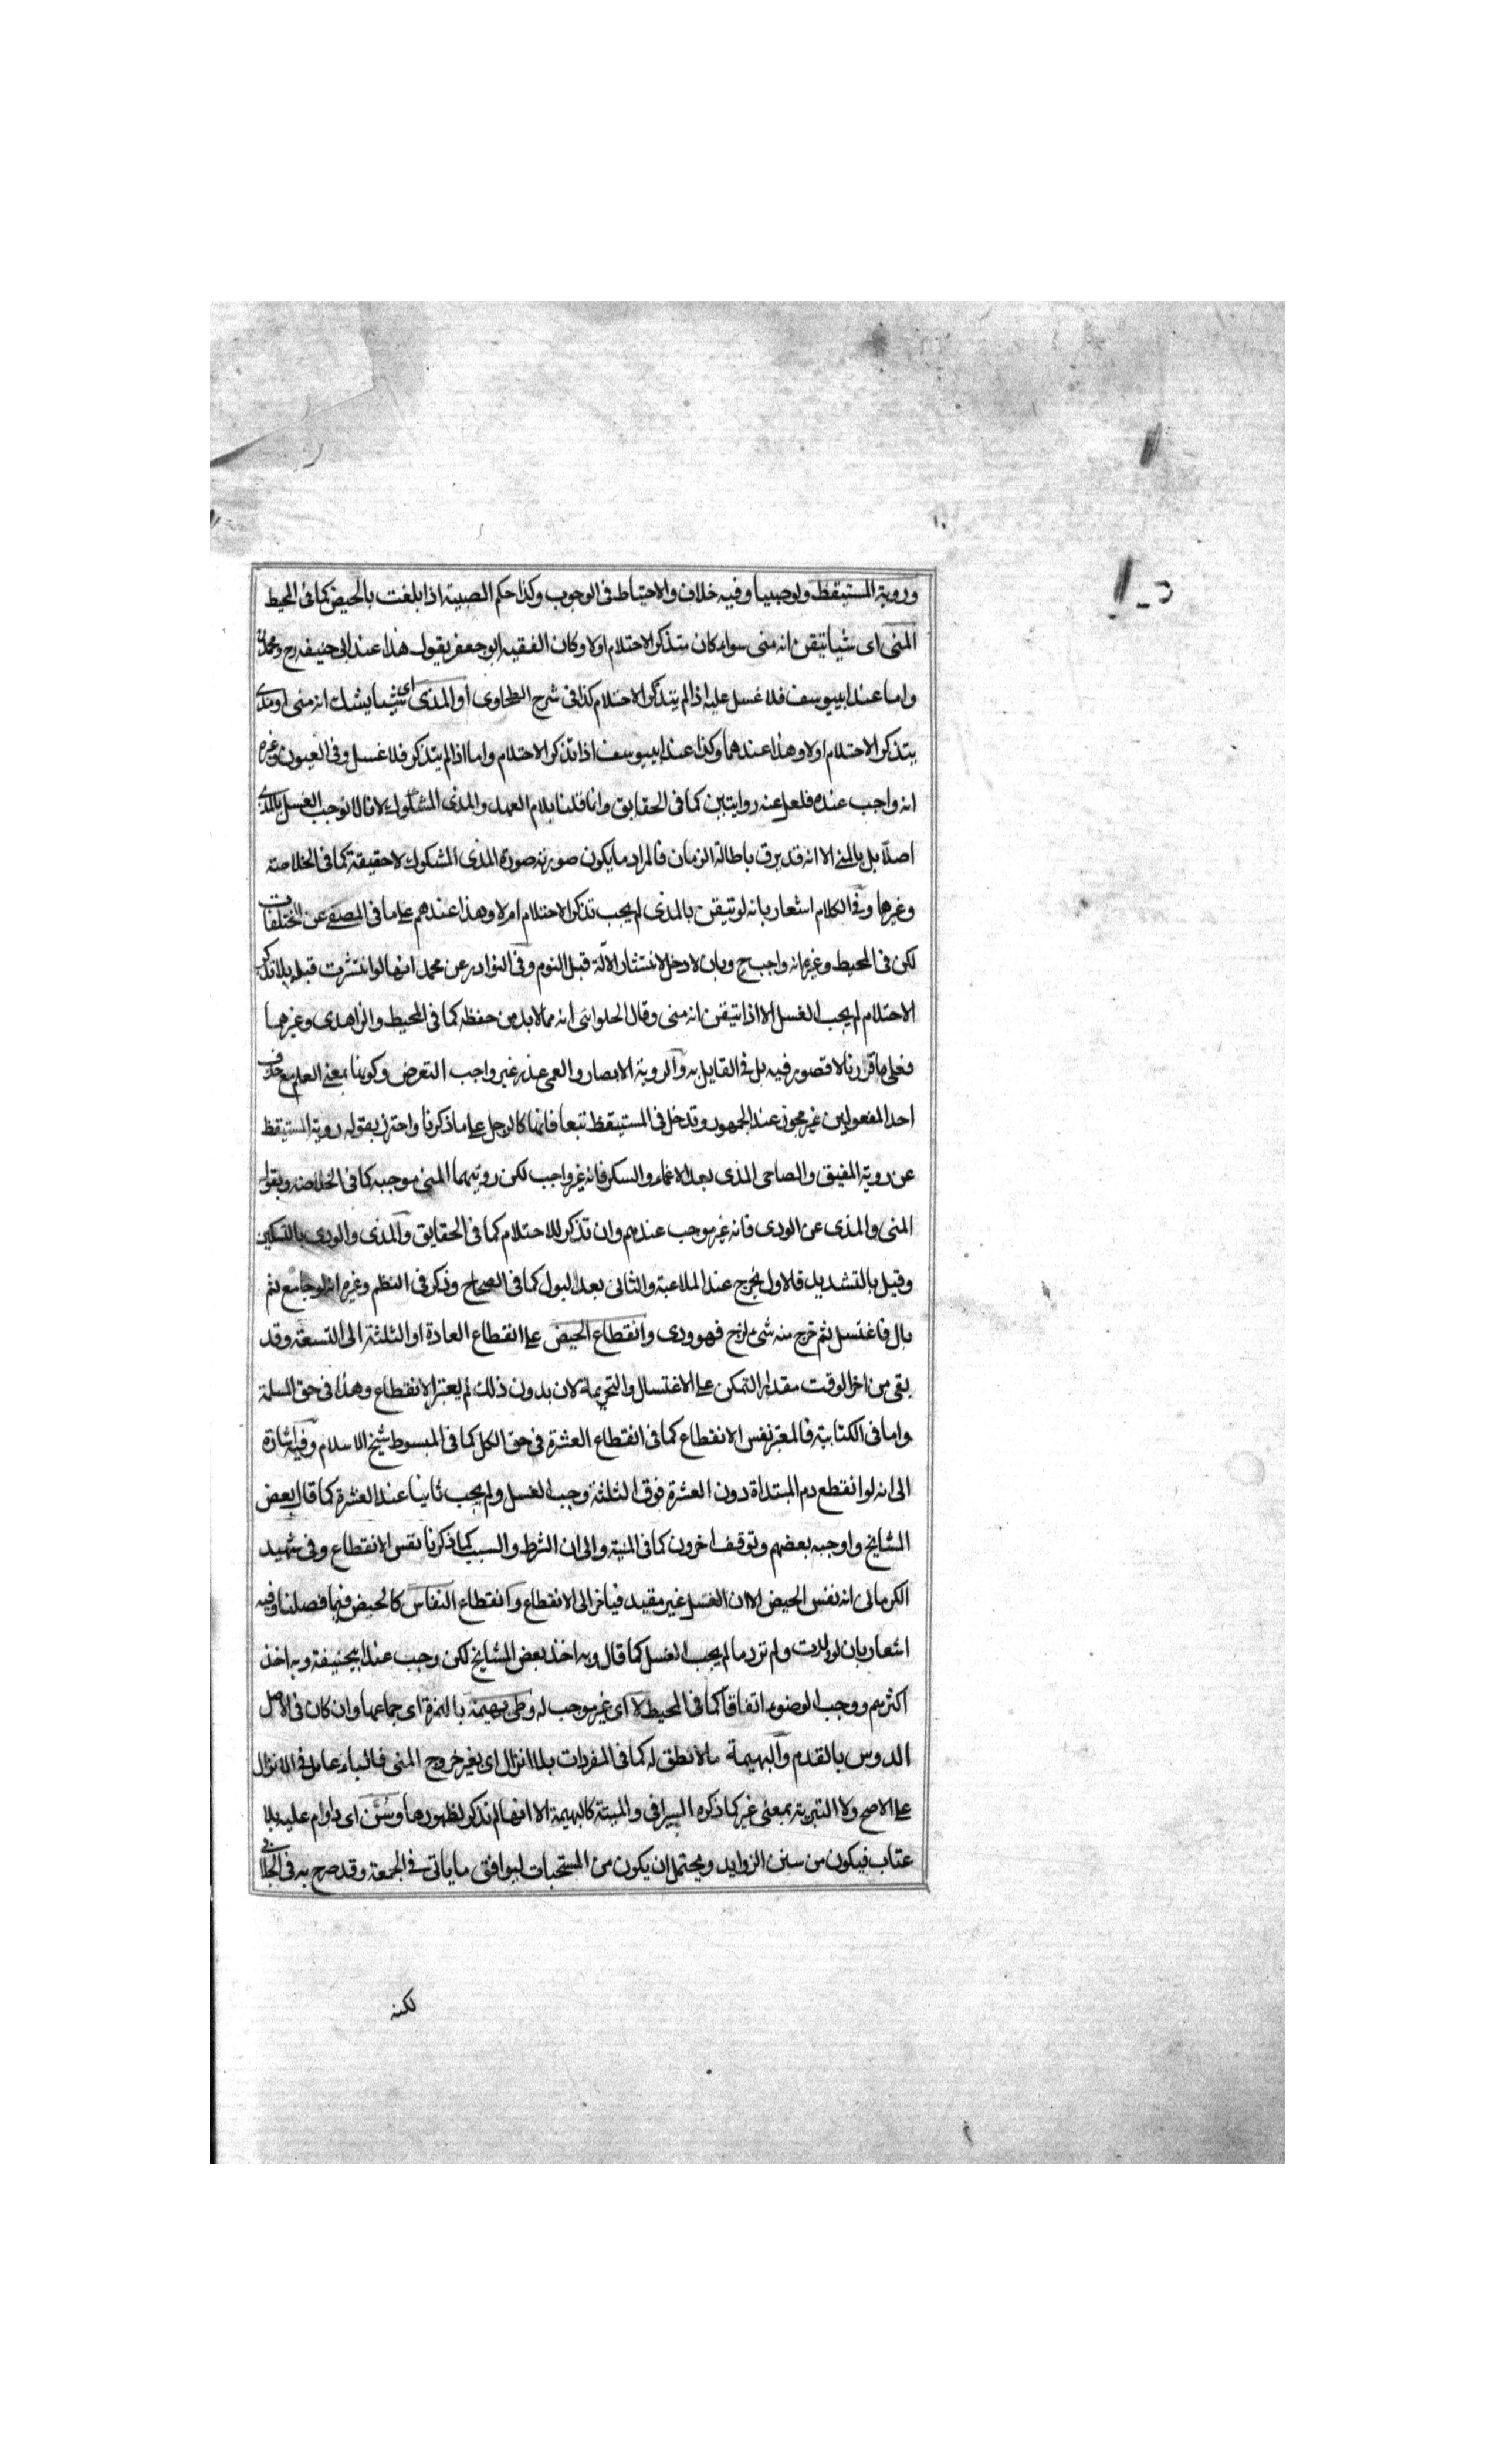 وروية المستيقظ ولوصبيا وفيه خلاف والاحتياط فى الوجوب وكذا حكم الصبية اذا بلغت بالحيض كما فى المحيط
المنى اى شيا تيقن انه منى سواء كان متذكر الاحتلام اولا وكان الفقيه ابو جعفر يقول هذا عند ابى حنيفه رح ومحمد
واما عند ابيوسف فلا غسل عليه اذا لم يتذكر الاحتلام كذا فى شرح الطحاوى او المذى اى شيا يشك انه منى او مذى
يتذكر الاحتلام اولا وهذا عندهما وكذا عند ابيوسف اذا تذكر الاحتلام واما اذا لم يتذكر فلا غسل وفى العيون وغيره
انه واجب عنده فلعل عنه روايتين كما فى الحقايق وانما قلنا بلام العهد والمذى المشكوك لانا لا نوجب الغسل بالمذى
اصلا بل بالمنى الا انه قد يرق باطالة الزمان فالمراد ما يكون صورته صورة المذى المشكوك لا حقيقة كما فى الخلاصة
وغيرها وفى الكلام اشعار بانه لو تيقن بالمذى لم يجب تذكر الاحتلام ام لا وهذا عندهم على ما فى المصفى عن المختلفات
لكن فى المحيط وغيره انه واجب ح وبان لا دخل لانتشار الآلة قبل النوم وفى النوادر عن محمد انها لو انتشرت قبله بلا تذكر
الاحتلام لم يجب الغسل الا اذا تيقن انه منى وقال الحلوانى انه مما لا بد من حفظه كما فى المحيط والزاهدى وغيرهما
فعلى ما قررنا لا قصور فيه بل فى القايل به والروية الابصار والعمى عذر غير واجب التعرض وكونها بمعنى العلم مع حذف
احد المفعولين غير مجوز عند الجمهور وتدخل فى المستيقظ تبعا فانها كالرجل على ما ذكرنا واحترز بقوله روية المستيقظ
عن روية المفيق والصاحى المذى بعد الاغماء والسكر فانه غير واجب لكن رويتهما المنى موجبه كما فى الخلاصه وبقوله
المنى والمذى عن الودى فانه غير موجب عندهم وان تذكر للاحتلام كما فى الحقايق والمذى والودى بالتسكين
وقيل بالتشديد فالاول يخرج عند الملاعبة والثانى بعد البول كما فى الصحاح وذكر فى النظم وغيره انه لو جامع ثم
بال فاغتسل ثم خرج منه شئ لزج فهو ودى وانقطاع الحيض على انقطاع العادة او الثلثة الى التسعة وقد
بقى من اخر الوقت مقدار التمكن على الاغتسال والتحريمة لان بدون ذلك لم يعتبر الانقطاع وهذا فى حق المسلمة
واما فى الكتابية فالمعتبر نفس الانقطاع كما فى انقطاع العشرة فى حق الكل كما فى المبسوط شيخ الاسلام وفيه اشارة
الى انه لو انقطع دم المبتداة دون العشرة فوق الثلثة وجب الغسل ولم يجب ثانيا عند العشرة كما قال بعض
المشايخ واوجبه بعضهم وتوقف اخرون كما فى المنية والى ان الشرط والسبب كما ذكرنا نفس الانقطاع وفى تمهيد
الكرمانى انه نفس الحيض الا ان الغسل غير مقيد فيتاخر الى الانقطاع وانقطاع النفاس كالحيض فيما فصلنا وفيه
اشعار بان لو ولدت ولم تر دما لم يجب الغسل كما قال وبه اخذ بعض المشايخ لكن وجب عند ابيحنيفة وبه اخذ
اكثرهم ووجب الوضوء اتفاقا كما فى المحيط لا اى غير موجب له وطئ بهيمة بالهمزة اى جماعها وان كان فى الاصل
الدوس بالقدم والبهيمة ما لا نطق له كما فى المفردات بلا انزال اى بغير خروج المنى فالباء عامل فى الانزال
على الاصح ولا التبرية بمعنى غير كما ذكره السيرافى والميتة كالبهيمة الا انها لم تذكر لظهورها وسُنَّ اى داوام عليه بلا
عتاب فيكون من سنن الزوايد ويحتمل ان يكون من المستحبات ليوافق ما ياتى فى الجمعة وقد صرح به فى الجلابى
لكنه